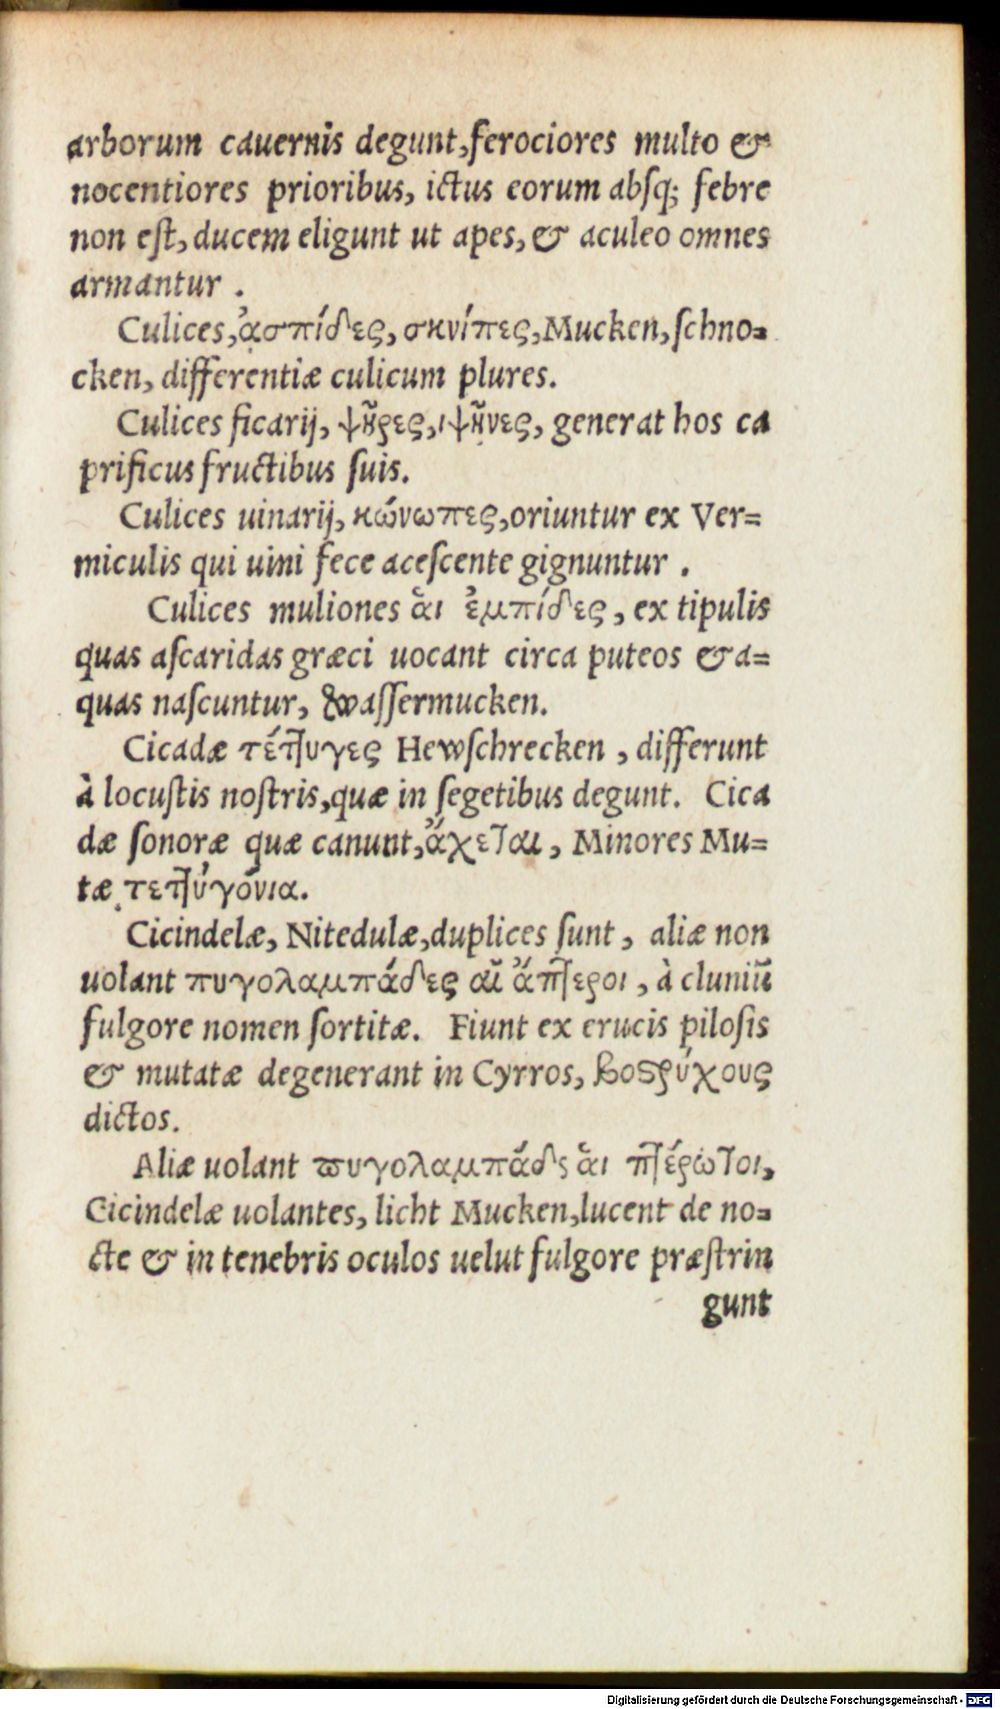 arborum cauernis degunt, ferociores multo &
nocentiores prioribus, ictus eorum absq; febre
non est, ducem eligunt ut apes, & aculeo omnes
armantur .
Culices, ἀσπίδες, σκνίπες, Mucken, schno=
cken, differentiæ culicum plures.
Culices ficarij, ψῆρες, ιψῆνες, generat hos ca
prificus fructibus suis.
Culices uinarij, κώνωπες, oriuntur ex Ver=
miculis qui uini fece acescente gignuntur .
Culices muliones ἃι ἐμπίδες, ex tipulis
quas ascaridas græci uocant circa puteos & a=
quas nascuntur, Wassermucken.
Cicadæ τέτ͡ιυγες Hewschrecken , differunt
à locustis nostris, quæ in segetibus degunt. Cica
dæ sonoræ quæ canunt, ἄχεται, Minores Mu=
tæ τετ͡ιὐγόνια.
Cicindelæ, Nitedulæ, duplices sunt, aliæ non
uolant πυγολαμπάδες αἳ ἄπτεροι, à cluniũ
fulgore nomen sortitæ. Fiunt ex erucis pilosis
& mutatæ degenerant in Cyrros, βοςρύχους
dictos.
Aliæ uolant πυγολαμπάδς ἃι πτέρωτοι,
Cicindelæ uolantes, licht Mucken, lucent de no=
cte & in tenebris oculos uelut fulgore præstrin
gunt
Digitalisierung gefördert durch die Deutsche Forschungsgemeinschaft - DFG